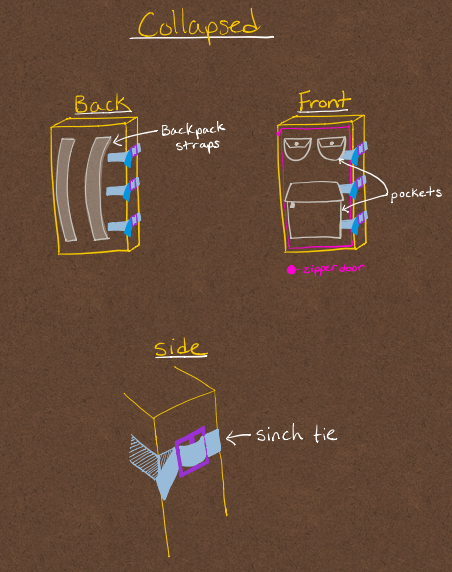 Collapsed
Back
Front
Backpack
straps
pockets
zipper door
side
sinch tie